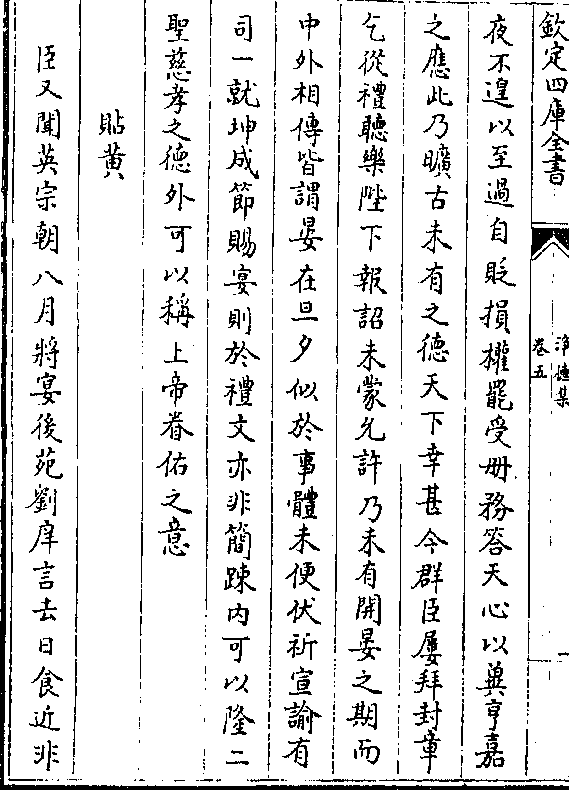 欽定四庫全書
淨德集
卷五
夜不遑以至過自貶損權罷受册務答天心以冀亨嘉
之應此乃曠古未有之德天下幸甚今群臣屢拜封章
乞從禮聽樂陛下報詔未蒙允許乃未有開晏之期而
中外相傳皆謂晏在旦夕似於事體未便伏祈宣諭有
司一就坤成節賜宴則於禮文亦非簡踈内可以隆二
聖慈孝之德外可以稱上帝眷佑之意
貼黄
臣又聞英宗朝八月將宴後苑劉庠言去日食近非